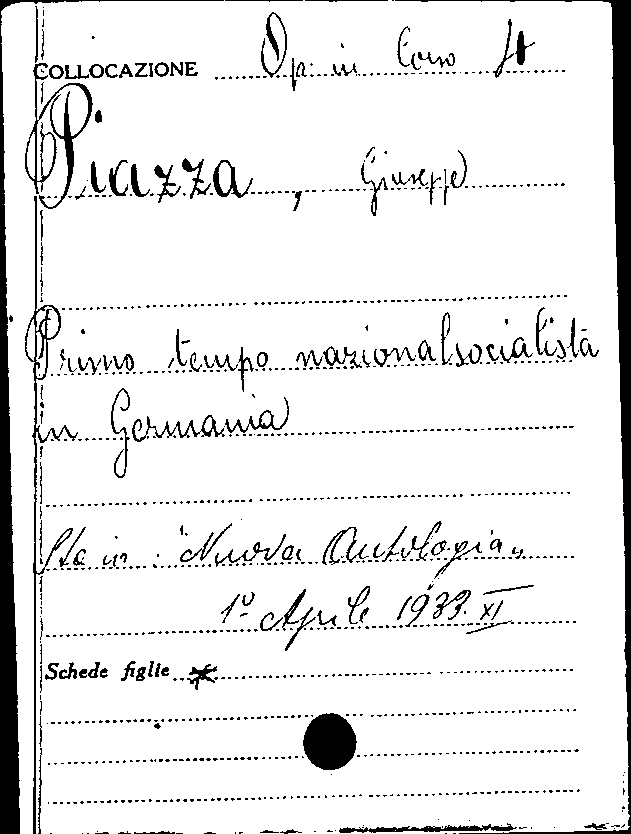 COLLOCAZIONE Op. in Corso
Piazza, Giuseppe
Primo tempo nazionalsocialista
in Germania
Sta in: "Nuova Antologia"
1º Aprile 1933. XI
Schede figlie